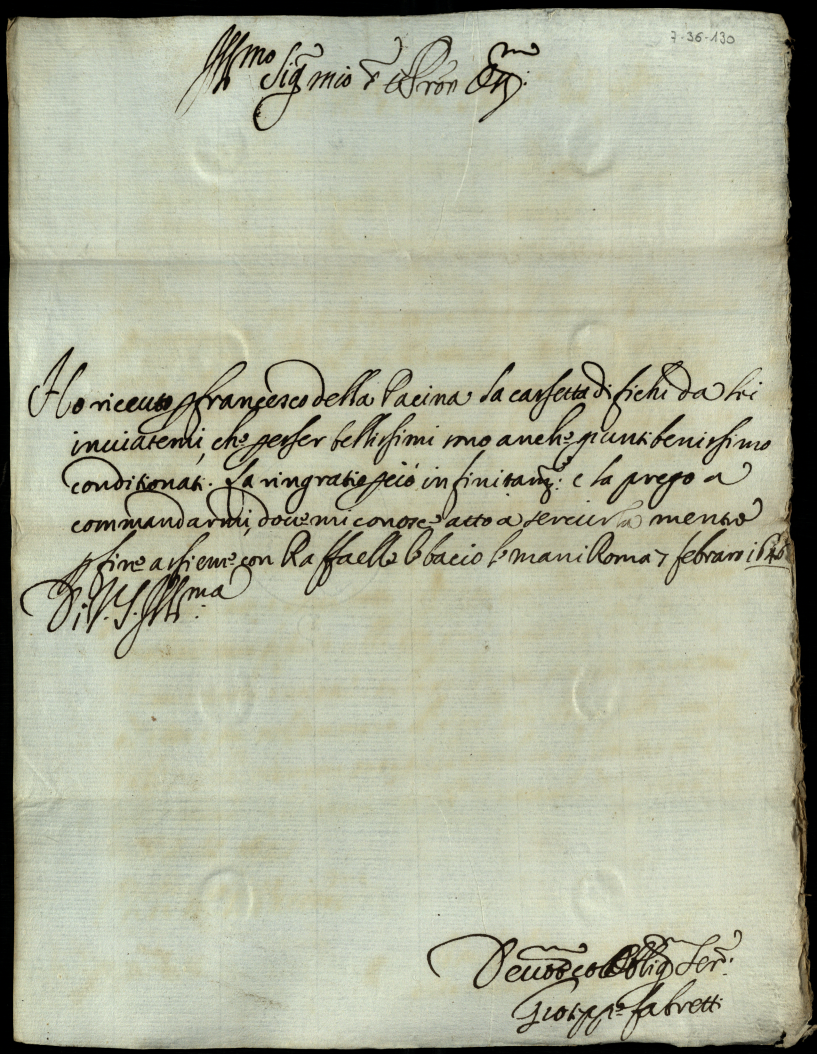 7-36-130
Illmo Sigr mio e Pron
Ho riceuto p francesco della Pacina la cassetta di fichi da lei
inuiatemi, che p esser bellissimi sono anche giunti benissimo
conditionati. La ringratio p ciò infinitamte: e la prego a
commandarmi, doue mi conosce atto a seruirla mentre
p fine assieme con Raffaelle le bacio le mani Roma 7 febraro
Di V. S. Illma
Deuotmo et Obligmo Serre:
Gioseppe fabretti